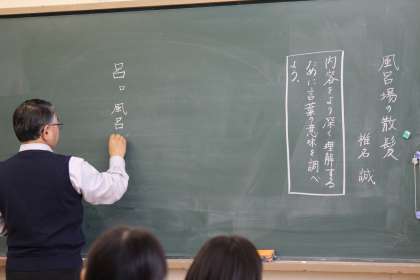 風呂場の散髪
椎名 誠
内容をより深く理解する
ために言葉の意味を調べ
よう。
呂 風呂